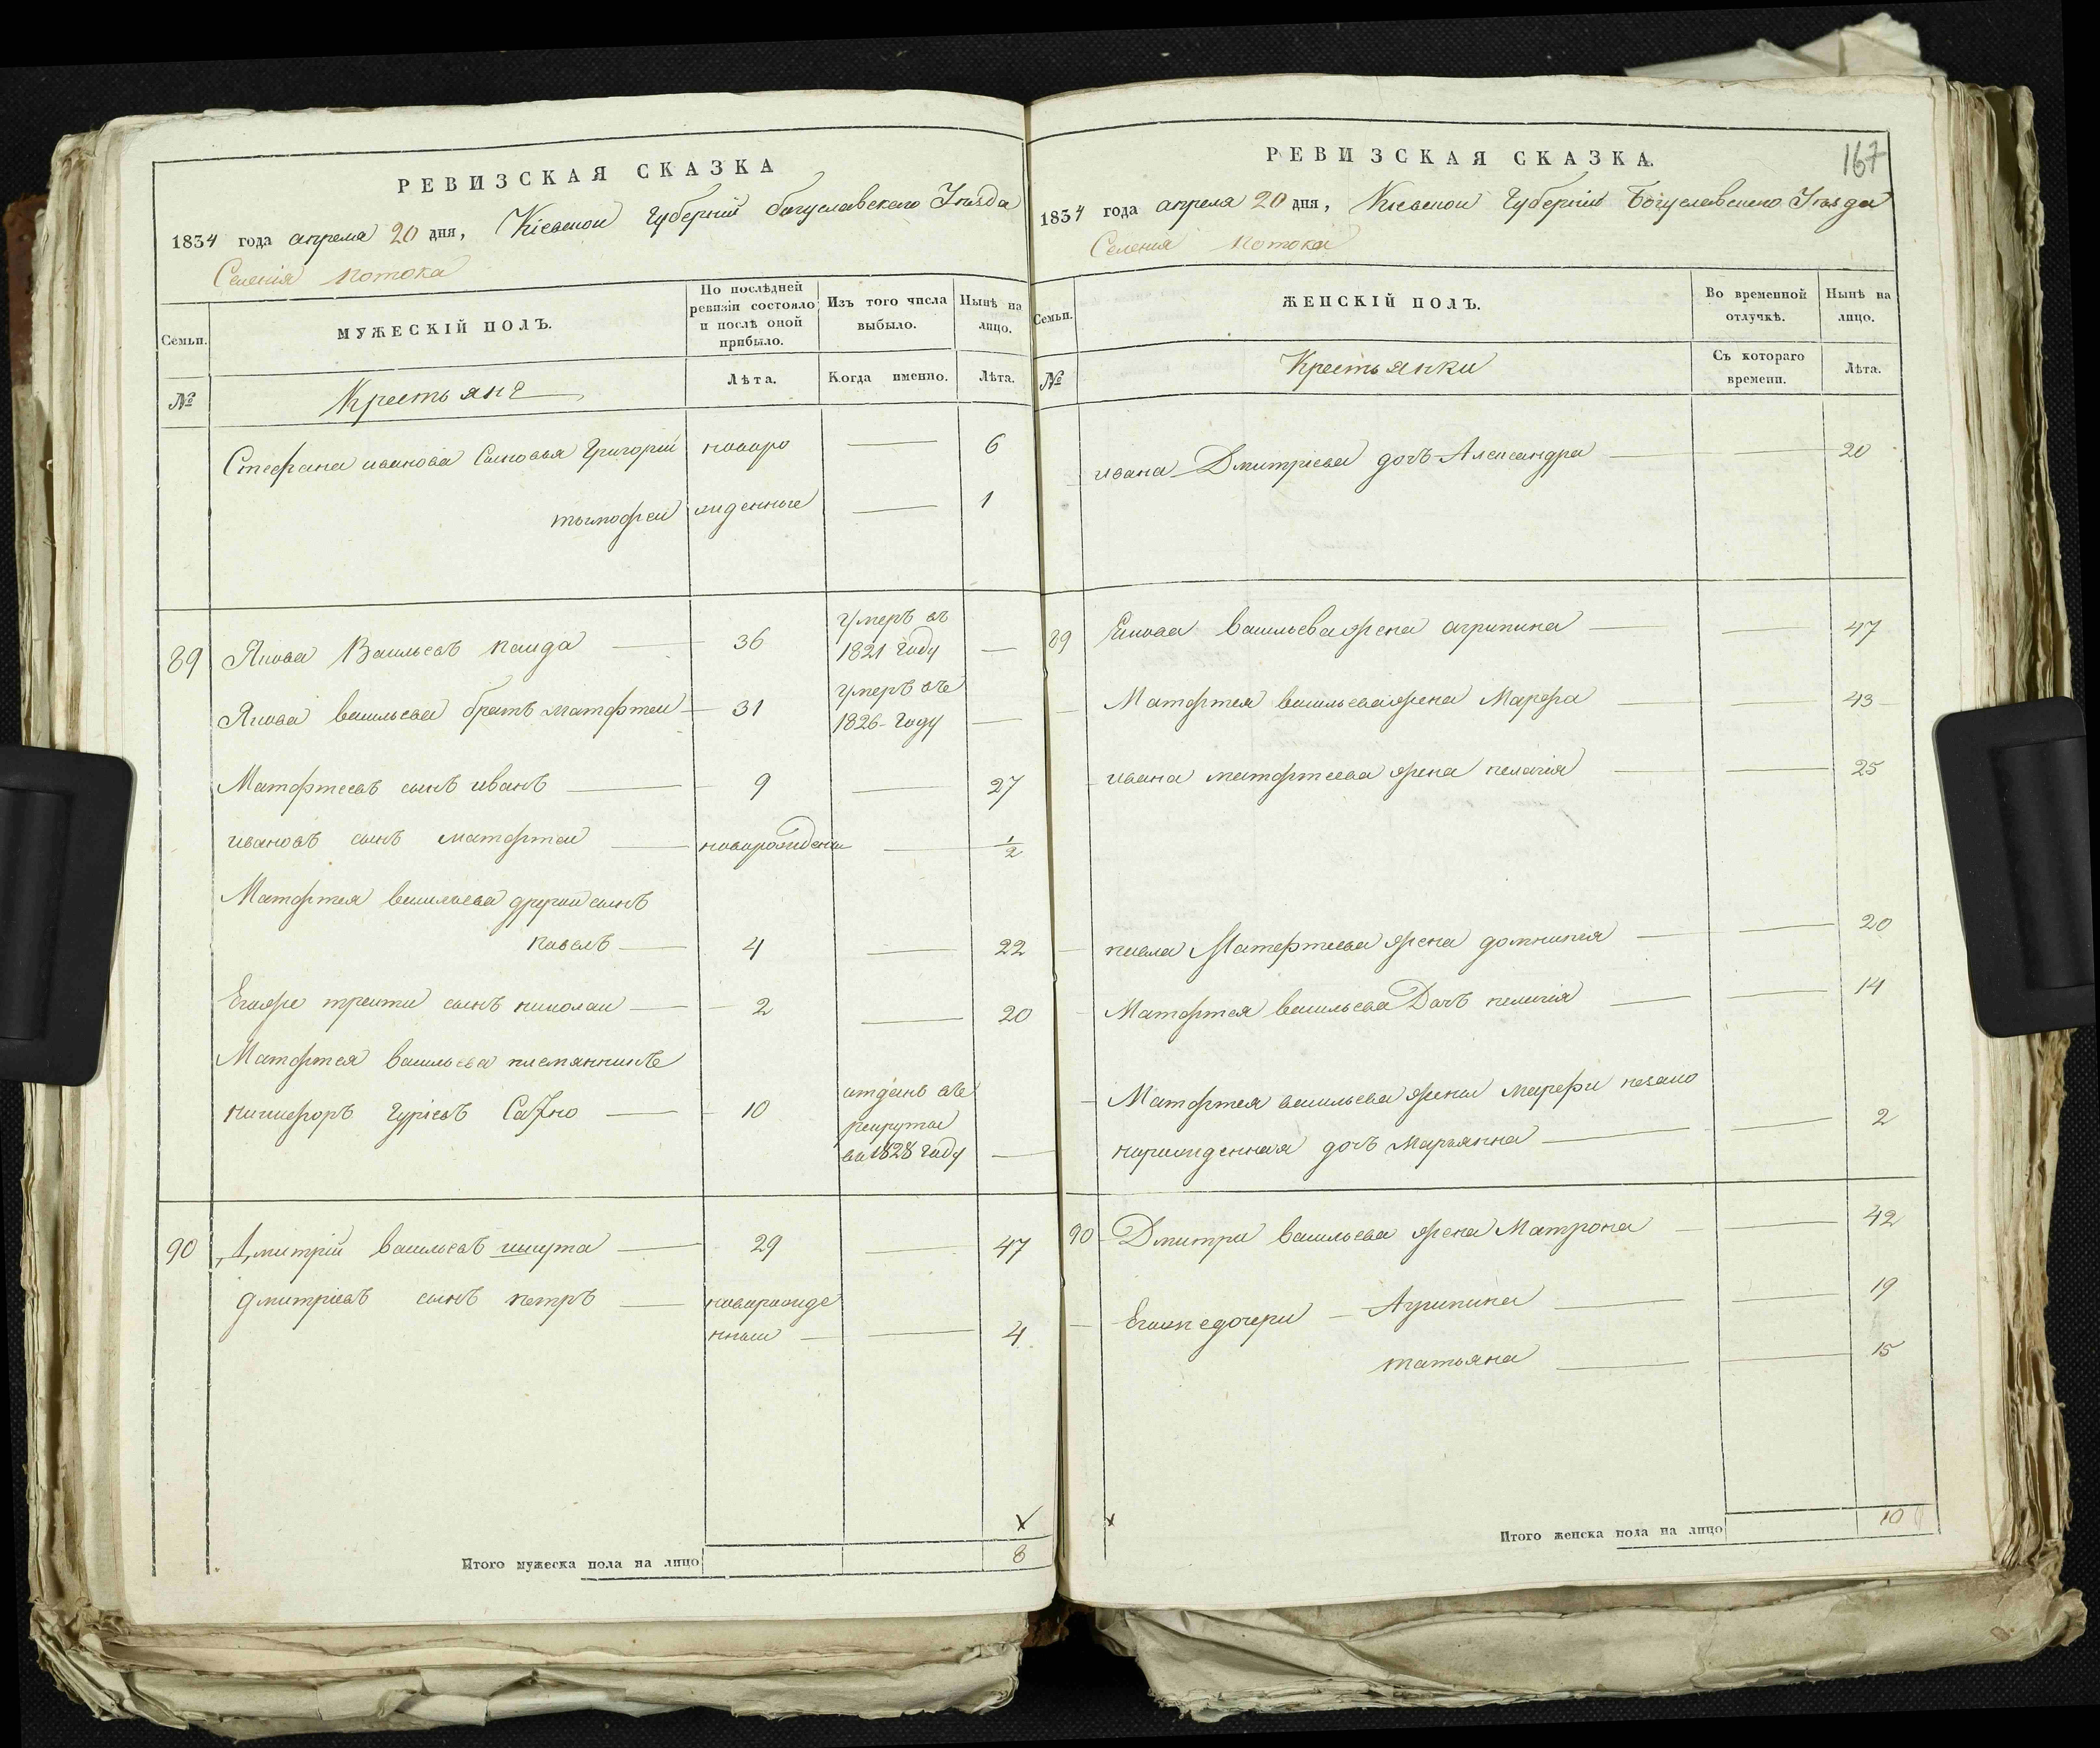 РЕВИЗСКАЯ СКАЗКА
1834 года апреля 20 дня, Кіевской Губерніи Богуславского Уѣзда
Селенія Потока
Семьи.
МУЖЕСКІЙ ПОЛЪ.
По послѣдней ревизіи состояло и послѣ оной прибыло.
Изъ того числа выбыло.
Нынѣ на лицо.
№
Крестьяне
Лѣта.
Когда именно.
Лѣта.
Стефана иванова Сыновья Григорій новоро — 6
тымофей жденные — 1
89 Якова Васильевъ — 36 умеръ въ 1821 году —
Якова васильева братъ матфтей — 31 умеръ въ 1826 году —
Матфтеевъ сынъ иванъ — 9 — 27
ивановъ сынъ матфтей — новорожденн — 1/2
Матфтея васильева другой сынъ
павелъ — 4 — 22
Егоже трети сынъ николай — 2 — 20
Матфтея васильева племянникъ
никифоръ гуріевъ — 10 отданъ въ рекруты в 1828 году —
90 Дмитрій васильевъ — 29 — 47
дмитріевъ сынъ петръ — новорожде
нный — — 4
Итого мужеска пола на лицо 8
РЕВИЗСКАЯ СКАЗКА.
167
1834 года апреля 20 дня, Кіевской Губерніи Богуславского Уѣзда
Селенія Потока
Семьи.
ЖЕНСКІЙ ПОЛЪ.
Во временной отлучкѣ.
Нынѣ на лицо.
№
Крестьянки
Съ котораго времени.
Лѣта.
ивана Дмитріева дочь Александра — — 20
89 Якова васильева жена агрипина — — 47
Матфтея васильева жена Марфа — — 43
ивана матфтеева жена пелагія — — 25
павла Матфтеева жена домникея — — 20
Матфтея васильева Дочь пелагія — — 14
Матфтея васильева жены марфы незако
норожденная дочь Марьянна — — 2
90 Дмитри васильева жена Матрона — — 42
Егожъ дочери — Агрипина — — 19
татьяна — — 15
Итого женска пола на лицо 10